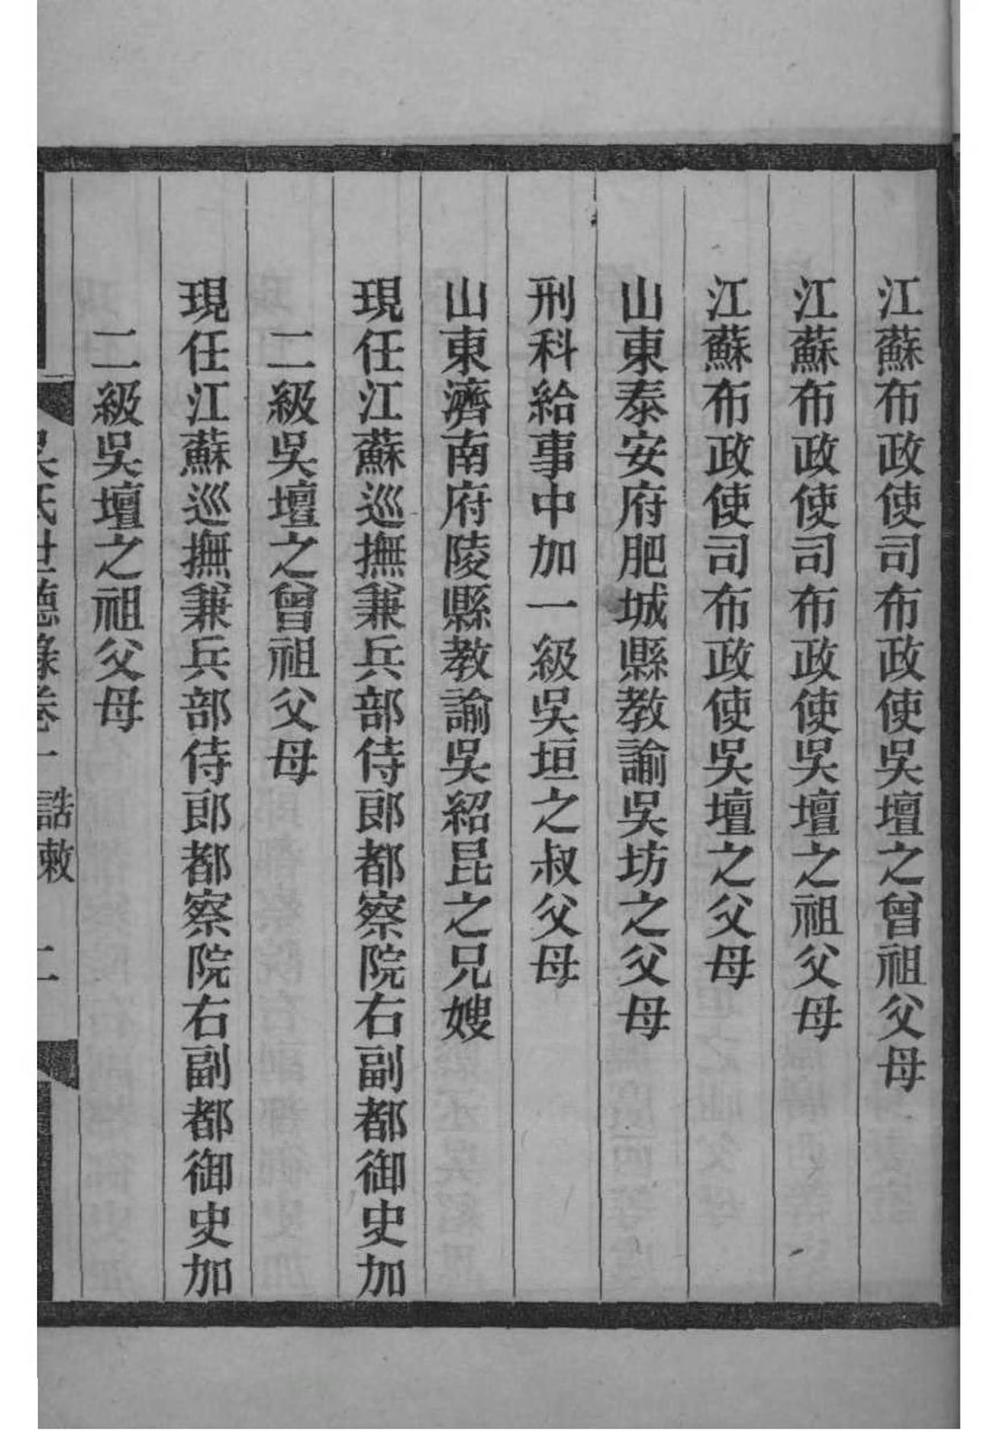 江蘇布政使司布政使吳壇之曾祖父母
江蘇布政使司布政使吳壇之祖父母
江蘇布政使司布政使吳壇之父母
山東泰安府肥城縣教諭吳坊之父母
刑科給事中加一級吳垣之叔父母
山東濟南府陵縣教諭吳紹昆之兄嫂
現任江蘇巡撫兼兵部侍郎都察院右副都御史加
二級吳壇之曾祖父母
現任江蘇巡撫兼兵部侍郎都察院右副都御史加
二級吳壇之祖父母
吳氏世德錄卷一 誥敕 二